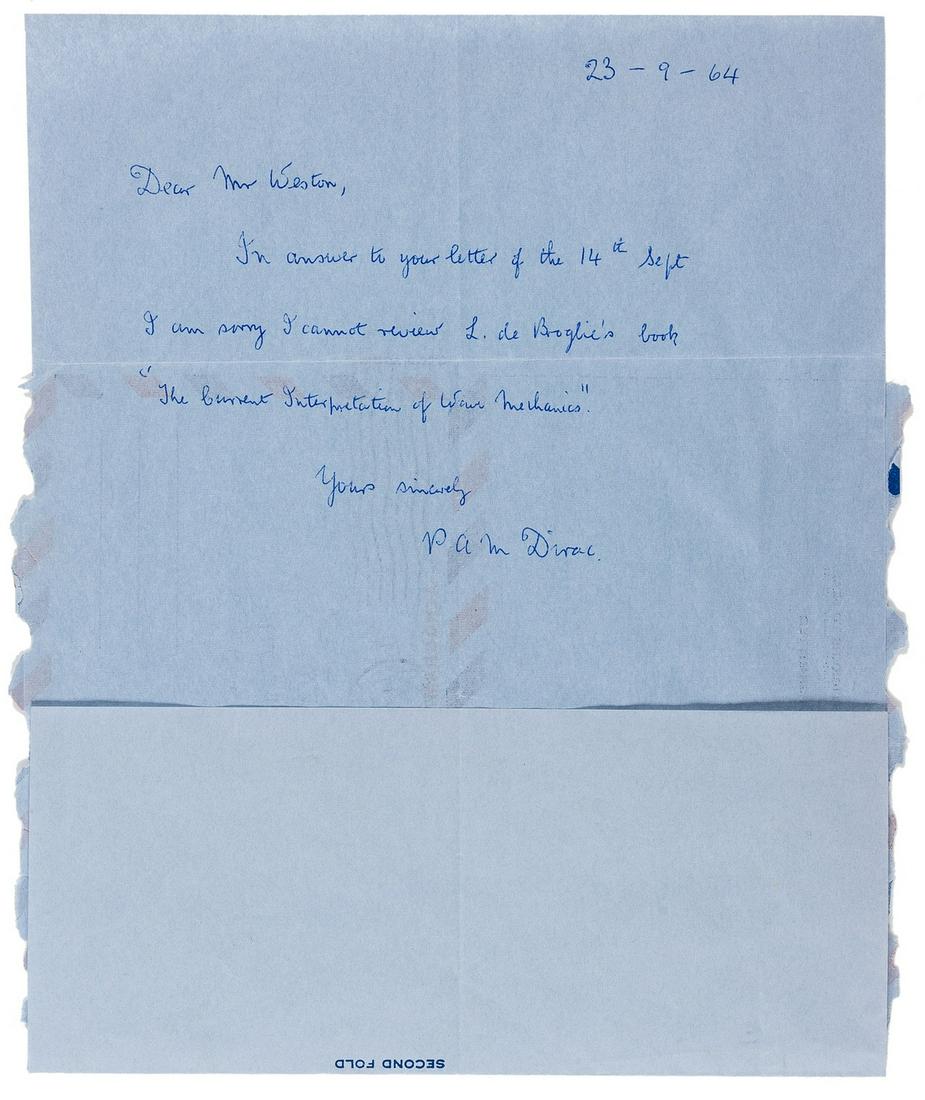 23 - 9 - 64
Dear Mr Weston,
In answer to your letter of the 14th Sept
I am sorry I cannot review L. de Broglie's book
"The Current Interpretation of Wave Mechanics".
Yours sincerely
P A M Dirac.
SECOND FOLD